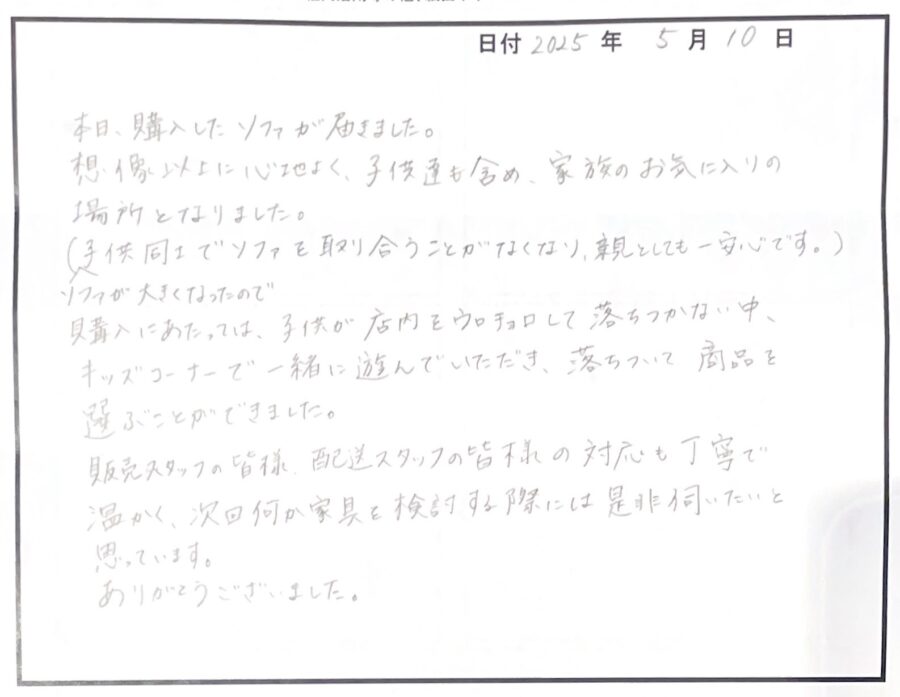 日付 2025 年 5 月 10 日
本日、購入したソファが届きました。
想像以上に心地よく、子供達も含め、家族のお気に入りの
場所となりました。
(子供同士でソファを取り合うことがなくなり、親としても一安心です。)
ソファが大きくなったので
購入にあたっては、子供が店内をウロチョロして落ちつかない中、
キッズコーナーで一緒に遊んでいただき、落ちついて商品を
選ぶことができました。
販売スタッフの皆様、配送スタッフの皆様の対応も丁寧で
温かく、次回何か家具を検討する際には是非伺いたいと
思っています。
ありがとうございました。